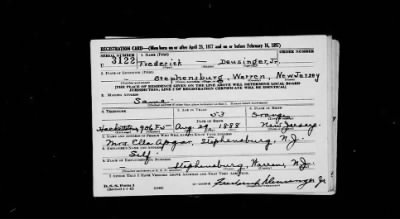 REGISTRATION CARD—(Men born on or after April 28, 1877 and on or before February 16, 1897)
SERIAL NUMBER
1. NAME (Print)
ORDER NUMBER
U 3122
Frederick — Deusinger, Jr.
2. PLACE OF RESIDENCE (Print)
Stephensburg, Warren, New Jersey
[THE PLACE OF RESIDENCE GIVEN ON THE LINE ABOVE WILL DETERMINE LOCAL BOARD
JURISDICTION; LINE 2 OF REGISTRATION CERTIFICATE WILL BE IDENTICAL]
3. MAILING ADDRESS
Same
4. TELEPHONE
5. AGE IN YEARS
6. PLACE OF BIRTH
53
DATE OF BIRTH
Hackettstown 906
Aug 29, 1888
New Jersey
7. NAME AND ADDRESS OF PERSON WHO WILL ALWAYS KNOW YOUR ADDRESS
Mrs. Ella Apgar, Stephensburg, N.J.
8. EMPLOYER'S NAME AND ADDRESS
Self
9. PLACE OF EMPLOYMENT OR BUSINESS
Stephensburg, Warren, N.J.
I AFFIRM THAT I HAVE VERIFIED ABOVE ANSWERS AND THAT THEY ARE TRUE.
D. S. S. Form 1
Frederick Deusinger Jr